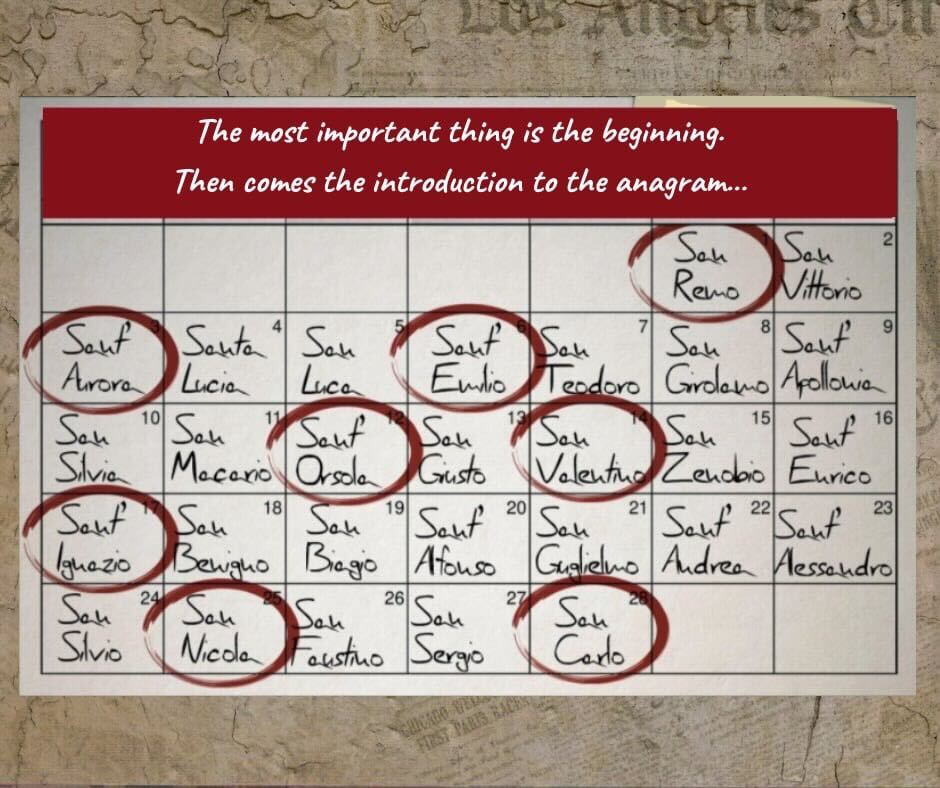 Los Angeles
The most important thing is the beginning.
Then comes the introduction to the anagram...
1
San
Remo
2
San
Vittorio
3
Sant'
Aurora
4
Santa
Lucia
5
San
Luca
6
Sant'
Emilio
7
San
Teodoro
8
San
Girolamo
9
Sant'
Apollonia
10
San
Silvia
11
San
Macario
12
Sant'
Orsola
13
San
Giusto
14
San
Valentino
15
San
Zenobio
16
Sant'
Enrico
17
Sant'
Ignazio
18
San
Benigno
19
San
Biagio
20
Sant'
Alfonso
21
San
Guglielmo
22
Sant'
Andrea
23
Sant'
Alessandro
24
San
Silvio
25
San
Nicola
26
San
Faustino
27
San
Sergio
28
San
Carlo
FIRST PARIS